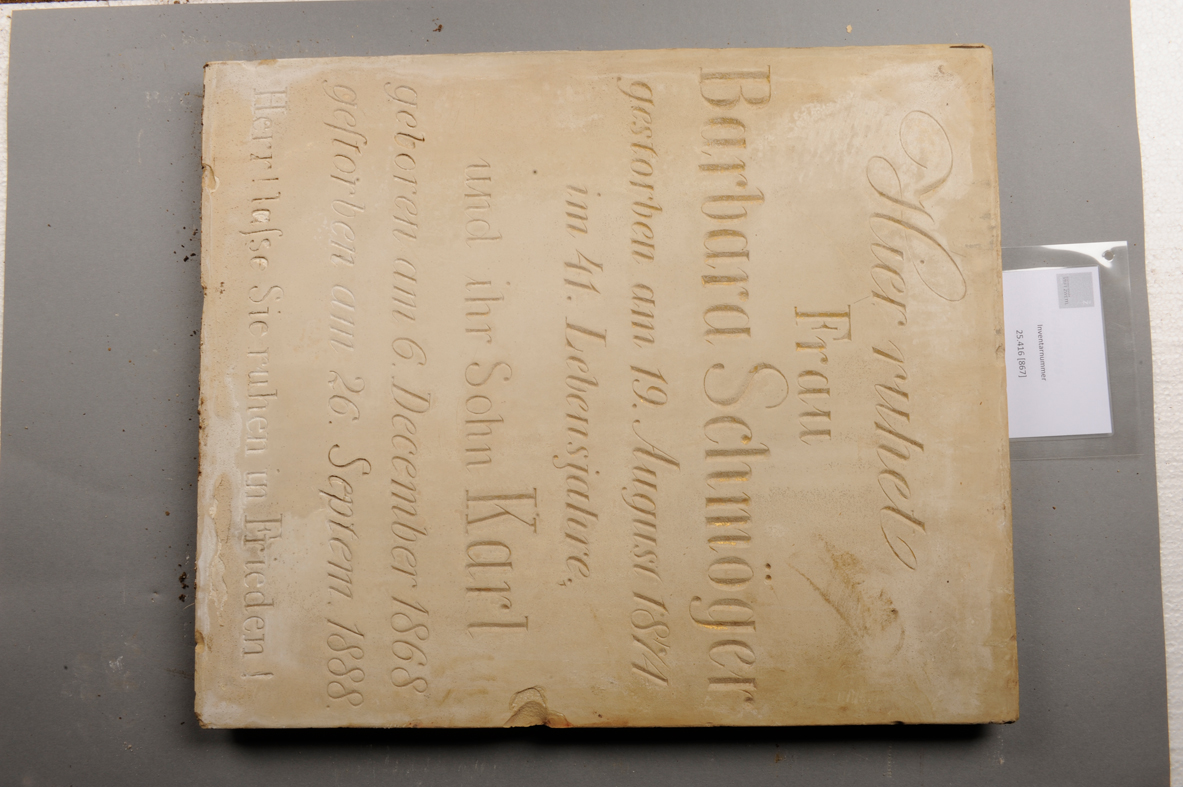 Hier ruhet
Frau
Barbara Schmöger
gestorben am 19. August 1874
im 41. Lebensjahre,
und ihr Sohn Karl
geboren am 6. December 1868
gestorben am 26. Septem. 1888.
Herr! laſse Sie ruhen in Frieden!
Inventarnummer
25.416 [867]